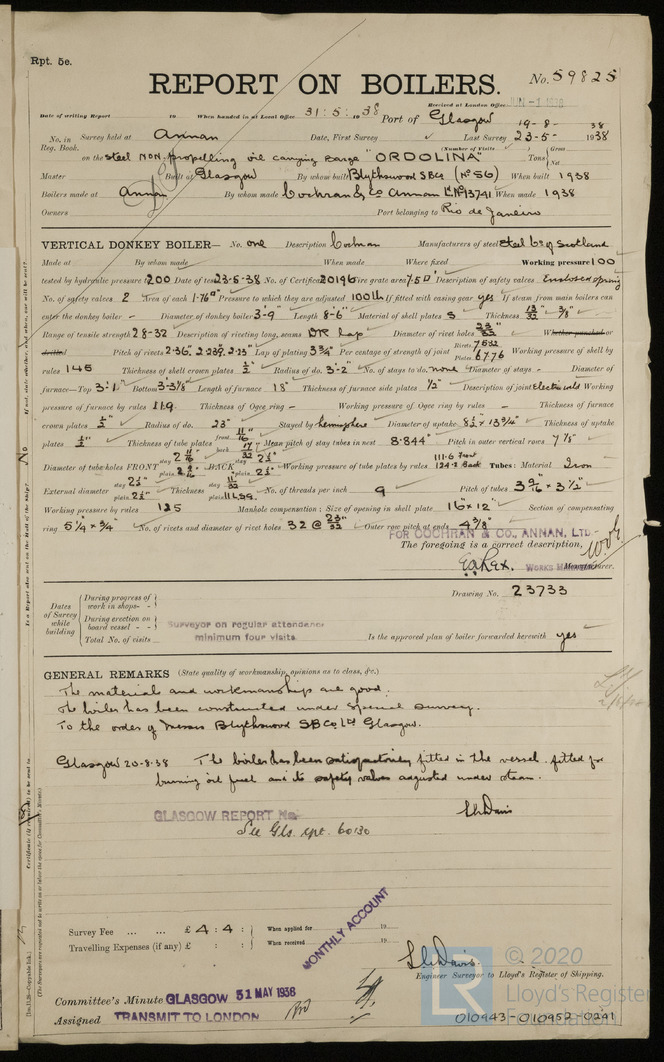 Rpt. 5e.
REPORT ON BOILERS.
No. 59825
Received at London Office JUN -1 1938
Date of writing Report 19 When handed in at Local Office 31:5:1938 Port of Glasgow
19-8- 38
No. in Survey held at Annan Date, First Survey Last Survey 23-5- 1938
Reg. Book. (Number of Visits )
on the Steel NON-propelling oil carrying barge "ORDOLINA" Tons { Gross Net
Master Built at Glasgow By whom built Blythswood SBCo (No 56) When built 1938
Boilers made at Annan By whom made Cochran & Co Annan Ld No 13791 When made 1938
Owners Port belonging to Rio de Janeiro
VERTICAL DONKEY BOILER— No. one Description Cochran Manufacturers of steel Steel Co of Scotland
Made at By whom made When made Where fixed Working pressure 100
tested by hydraulic pressure to 200 Date of test 23-5-38 No. of Certificate 20196 Fire grate area 7.5 □' Description of safety valves Enclosed spring
No. of safety valves 2 Area of each 1.76□" Pressure to which they are adjusted 100 lb If fitted with easing gear yes If steam from main boilers can
enter the donkey boiler - Diameter of donkey boiler 3'-9" Length 8'-6" Material of shell plates S Thickness 13/32" 3/8"
Range of tensile strength 28-32 Description of riveting long. seams DR Lap Diameter of rivet holes 23/32" Whether punched or
drilled Pitch of rivets 2.36" 2.239" 2.13" Lap of plating 3 3/4" Per centage of strength of joint Rivets 75.82 Plates 67.76 Working pressure of shell by
rules 145 Thickness of shell crown plates 1/2" Radius of do. 3'-2" No. of stays to do. none Diameter of stays - Diameter of
furnace—Top 3'-1" Bottom 3'-3 3/8" Length of furnace 18" Thickness of furnace side plates 1/2" Description of joint Elect. weld Working
pressure of furnace by rules 119 Thickness of Ogee ring - Working pressure of Ogee ring by rules - Thickness of furnace
crown plates 1/2" Radius of do. 23" Stayed by hemisphere Diameter of uptake 8 1/2" x 13 3/4" Thickness of uptake
plates 1/2" Thickness of tube plates front 11/16" back 17/32" Mean pitch of stay tubes in nest 8.844" Pitch in outer vertical rows 7 1/8"
Diameter of tube holes FRONT stay 2 11/16" plain 2 9/16" BACK stay 2 1/2" plain 2 1/2" Working pressure of tube plates by rules 111.6 Front 124.2 Back Tubes: Material Iron
External diameter stay 2 1/2" plain 2 1/2" Thickness stay 11/32" plain 11 LSG. No. of threads per inch 9 Pitch of tubes 3 9/16" x 3 1/2"
Working pressure by rules 125 Manhole compensation: Size of opening in shell plate 16" x 12" Section of compensating
ring 5 1/4" x 3/4" No. of rivets and diameter of rivet holes 32 @ 23/32" Outer row pitch at ends 4 3/8"
FOR COCHRAN & CO., ANNAN, LTD
The foregoing is a correct description,
WORKS MANAGER Manufacturer.
Dates of Survey while building
During progress of work in shops - -
During erection on board vessel - -
Total No. of visits
Surveyor on regular attendance
minimum four visits.
Drawing No. 23733
Is the approved plan of boiler forwarded herewith yes
GENERAL REMARKS (State quality of workmanship, opinions as to class, &c.)
The materials and workmanship are good.
The boiler has been constructed under special survey.
To the order of Messrs Blythswood SBCo Ltd Glasgow.
Glasgow 20-8-38 The boiler has been satisfactorily fitted in the vessel. fitted for
burning oil fuel and its safety valves adjusted under steam.
GLASGOW REPORT No.
See Gls. rpt. 60130
Survey Fee ... ... £ 4 : 4 : When applied for 19
Travelling Expenses (if any) £ : : When received 19
MONTHLY ACCOUNT
Engineer Surveyor to Lloyd's Register of Shipping.
Committee's Minute GLASGOW 31 MAY 1938
Assigned TRANSMIT TO LONDON
© 2020
Lloyd's Register
Foundation
010943-010952-0291